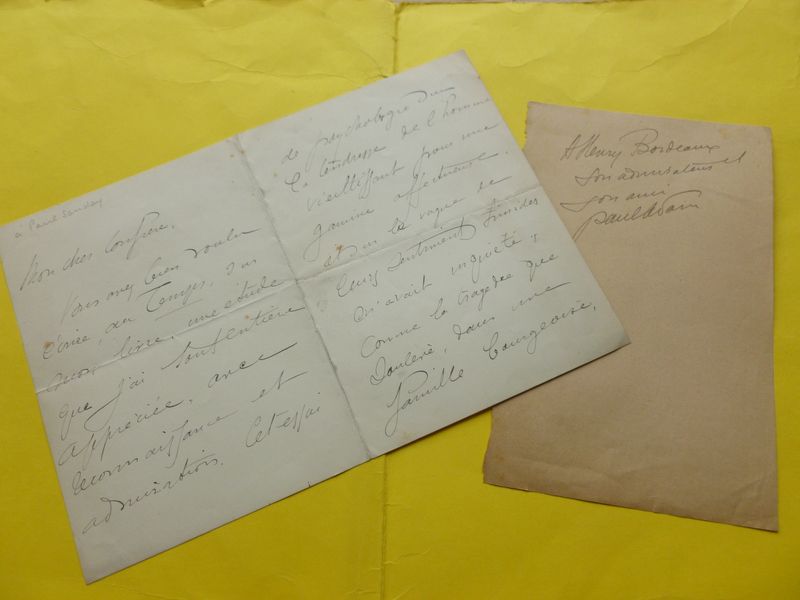 à Paul Souday
Mon cher confrère,
Vous avez bien voulu
écrire, au Temps, sur
mon livre, une étude
que j'ai tout entière
appréciée, avec
reconnaissance et
admiration. Cet essai
de psychologie sur
la tendresse de l'homme
vieillissant pour une
gamine affectueuse
et sur le vague de
leurs sentiments timides
m'avait inquiété,
comme la tragédie que
soulève, dans une
famille bourgeoise,
A Henry Bordeaux
son admirateur et
son ami
Paul Adam